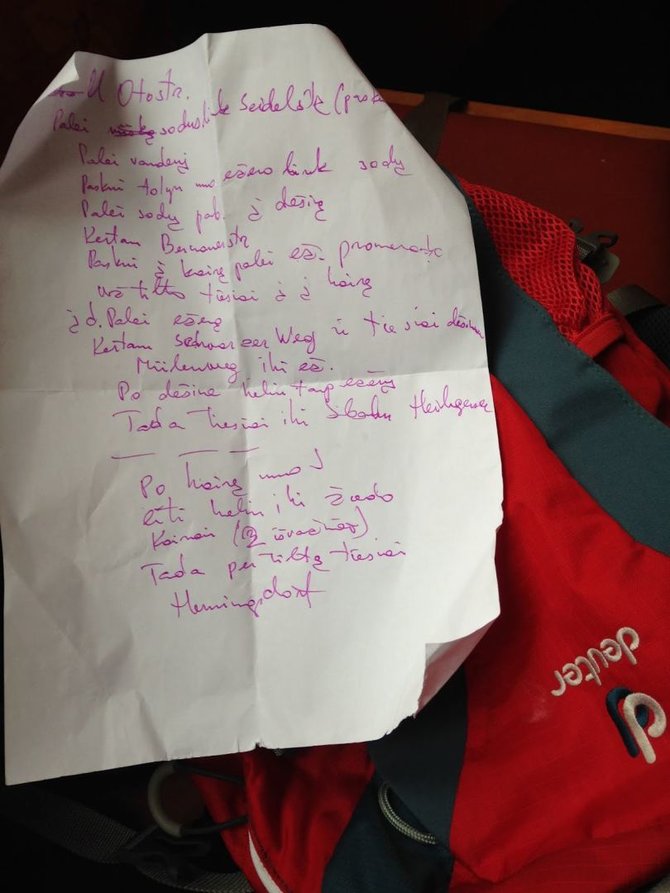 U Otostr.
Palei sodus. link Seidelstr (pro
Palei vandenį
Paskui tolyn nuo ežero link sodų
Palei sodų pab. į dešię
Kertam Bernauerstr
Paskui į kairę palei ež. promenadę
už tilto tiesiai į į kairę
į d. Palei ežerą
Kertam Schwarzer Weg ir tiesiai
Mülenweg iki ež.
Po dešine keliu tarp ežerų
Tada tiesiai iki Sbahn
Po kairę nuo
eiti keliu iki žiedo
Kairiai (2 išvaž)
Tada per tiltą tiesiai
Henningsdorf
deuter